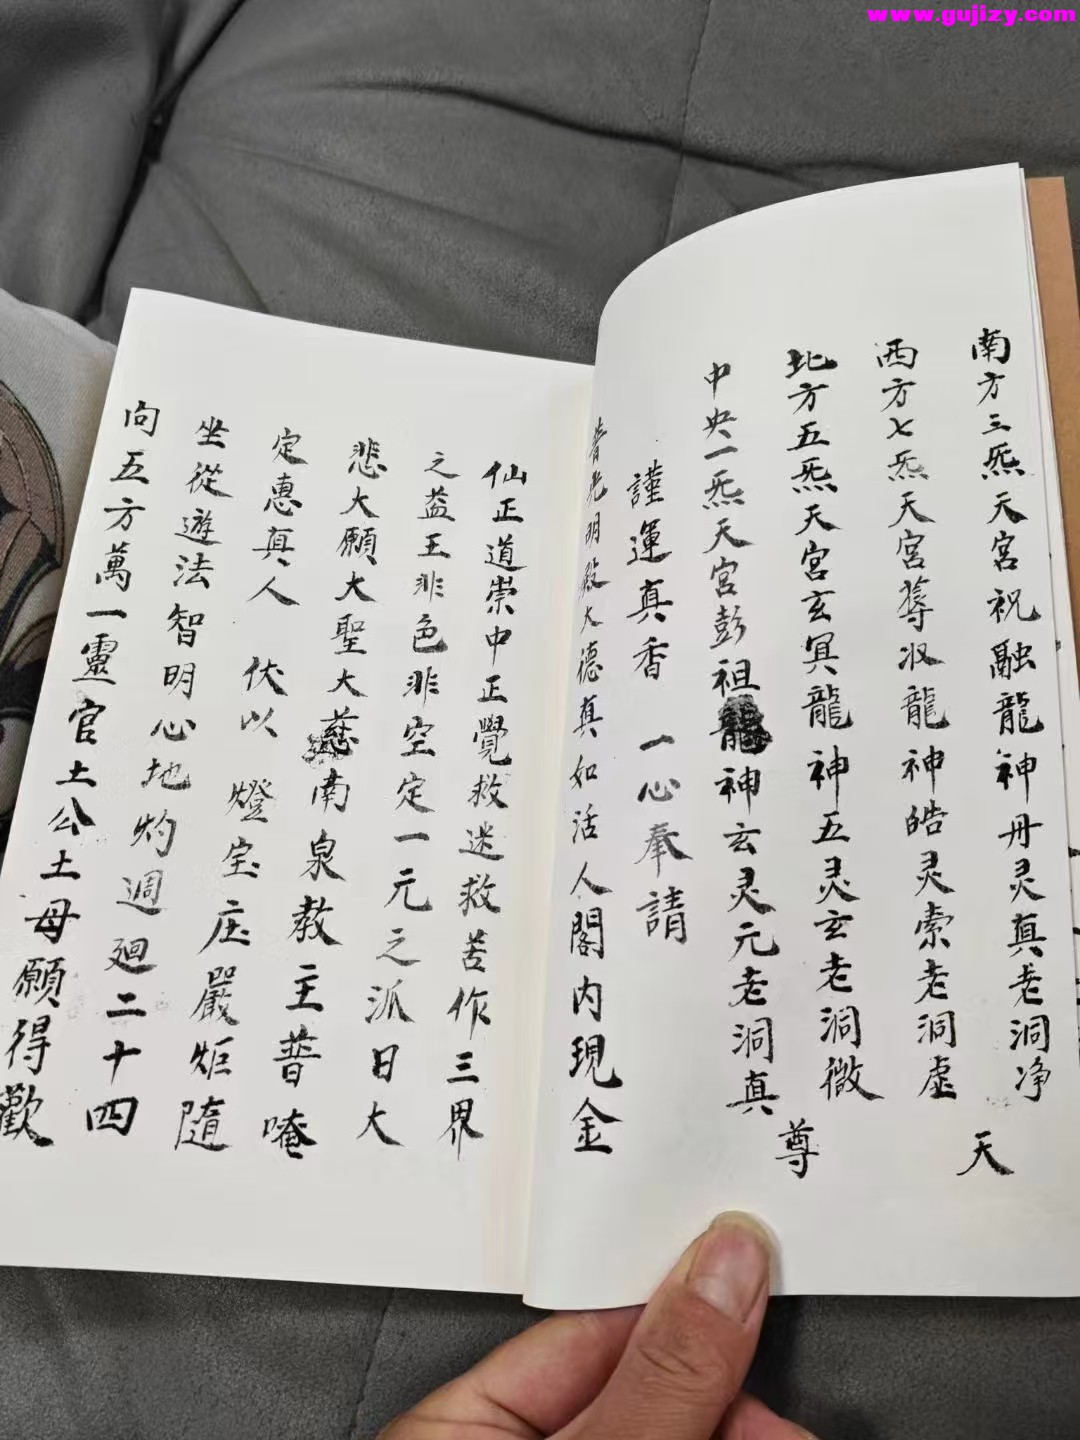 www.gujizy.com
南方三炁天宮祝融龍神丹灵真老洞净
西方七炁天宮蓐収龍神皓灵索老洞虚
天
北方五炁天宮玄冥龍神五灵玄老洞微
中央一炁天宮彭祖龍神玄灵元老洞真
尊
謹運真香 一心奉請
普光明殿大德真如活人閣内現金
仙正道崇中正覺救迷救苦作三界
之益王非色非空定一元之派日大
悲大願大聖大慈南泉教主普唵
定惠真人 伏以 燈宝庄嚴炬隨
坐從遊法智明心地灼週廻二十四
向五方萬一靈官土公土母願得歡